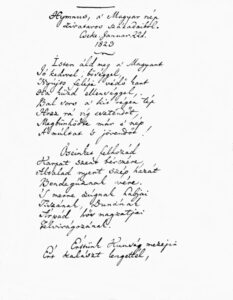 Hymnus, a' Magyar nép
zivataros századaiból.
Cseke Januar 22d.
1823
Isten áld meg a' Magyart
Jó kedvvel, bőséggel,
Nyújts feléje védő kart
Ha küzd ellenséggel,
Bal sors a' kit régen tép
Hozz rá víg esztendőt,
Megbűnhődte már e' nép
A' múltat 's jövendőt!
Őseinket felhozád
Kárpát szent bérczére,
Általad nyert szép hazát
Bendegúznak vére.
'S merre zúgnak habjai
Tiszának, Dunának
Árpád hős magzatjai
Felvirágozának.
Értünk Kunság mezein
Ért kalászt lengettél,